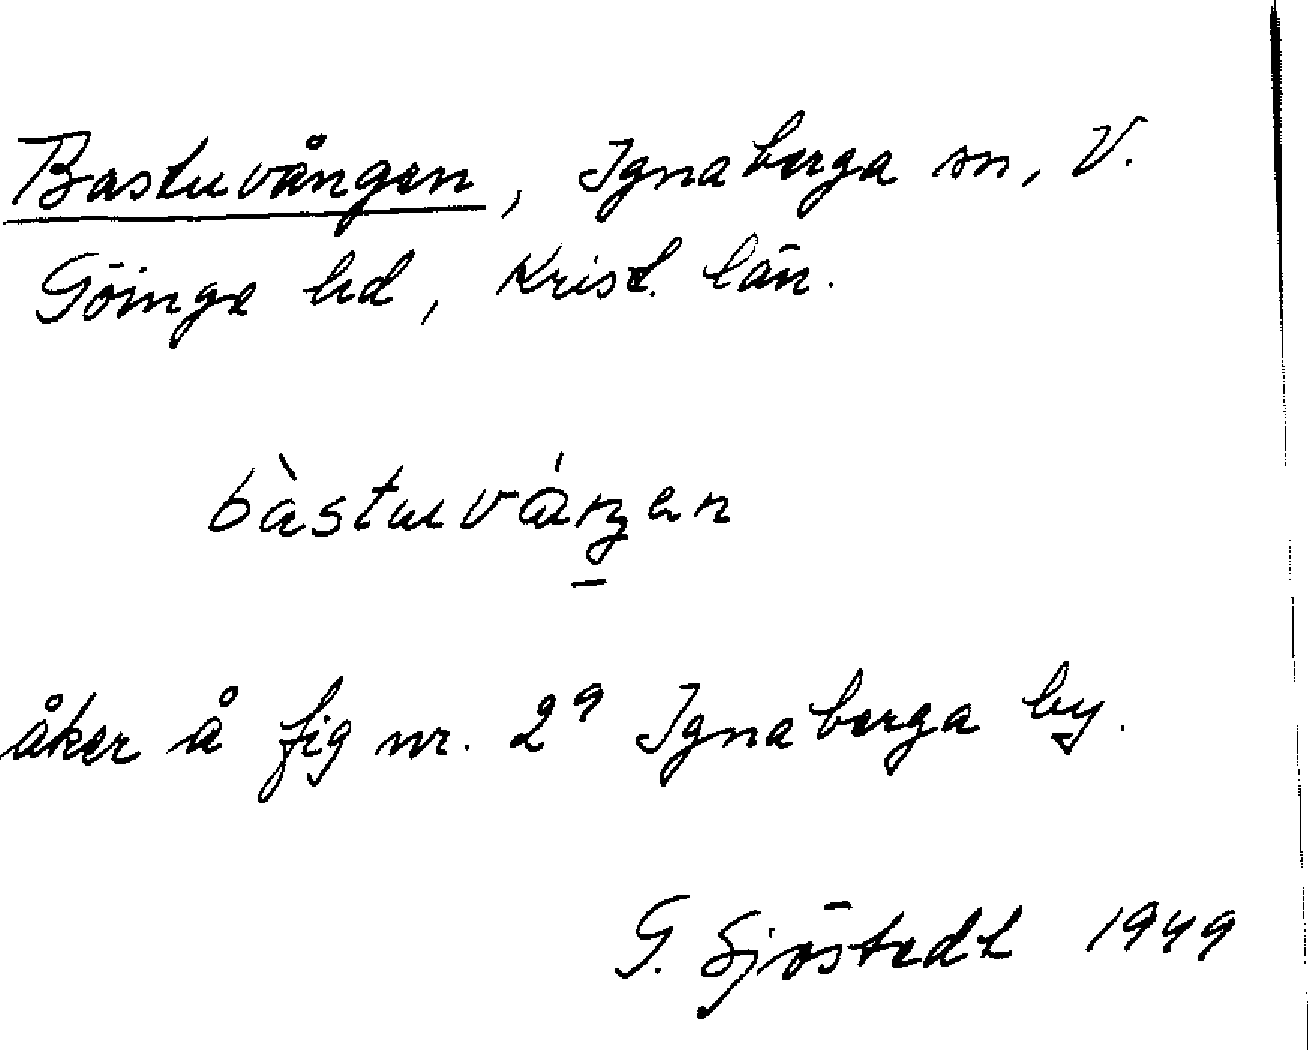 Bastuvången, Ignaberga sn, V.
Göinge hd, Krist. län.
bàstuváŋen
åker å fig nr. 29 Ignaberga by.
G. Sjöstedt 1949